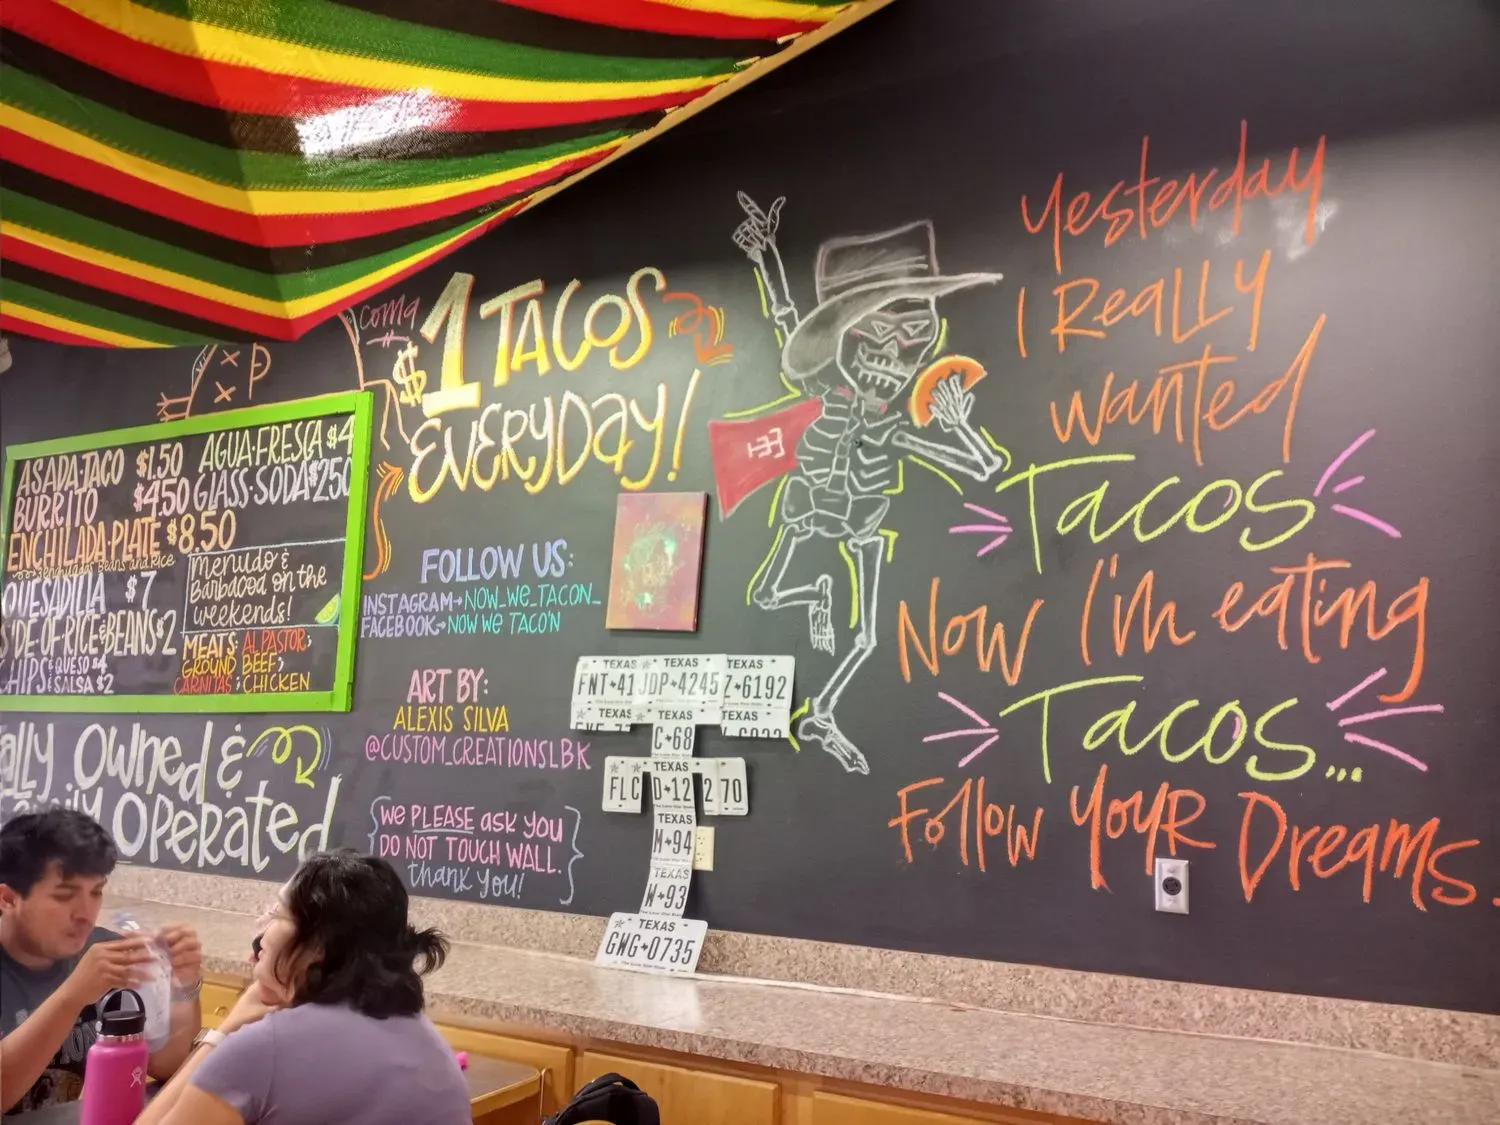 coma
$1 TACOS
EVERYDAY!
ASADA·TACO $1.50
BURRITO $4.50
ENCHILADA·PLATE $8.50
QUESADILLA $7
SIDE·OF·RICE&BEANS $2
CHIPS & QUESO $4
& SALSA $2
AGUA·FRESCA $4
GLASS·SODA $250
menudo &
Barbacoa on the
weekends!
MEATS: AL PASTOR;
GROUND BEEF;
CARNITAS; CHICKEN
Owned &
Operated
FOLLOW US:
INSTAGRAM→NOW_WE_TACON_
FACEBOOK→NOW WE TACO'N
ART BY:
ALEXIS SILVA
@CUSTOM_CREATIONSLBK
We PLEASE ask you
DO NOT TOUCH WALL.
thank you!
TEXAS TEXAS TEXAS
FNT·41 JDP·4245 Z·6192
TEXAS TEXAS TEXAS
C·68
TEXAS
FLC D·12 2 70
TEXAS
M·94
TEXAS
W·93
TEXAS
GWG·0735
Yesterday
I Really
wanted
Tacos
Now I'm eating
Tacos...
Follow your Dreams.